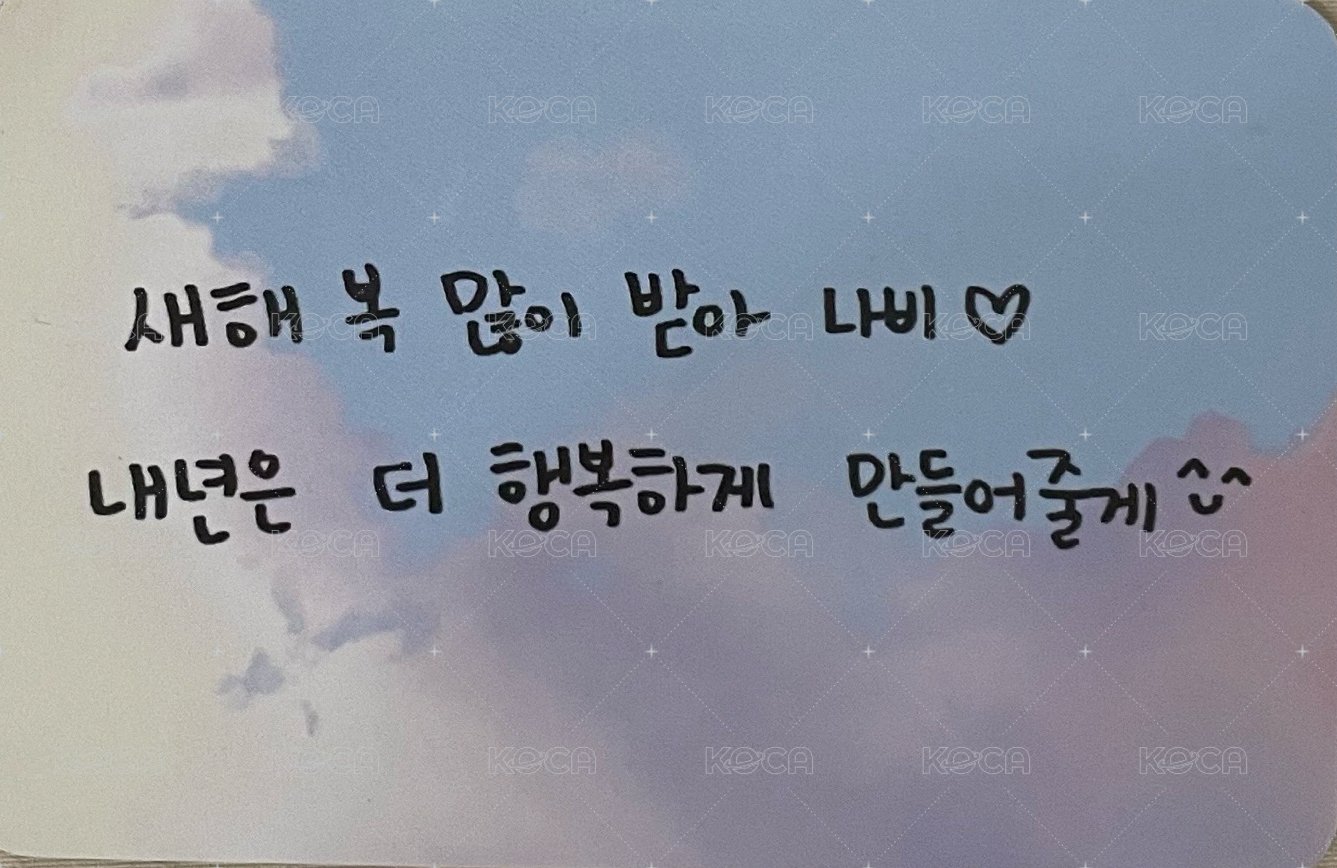 새해 복 많이 받아 나비♡
내년은 더 행복하게 만들어줄게 ^_^
KOCA